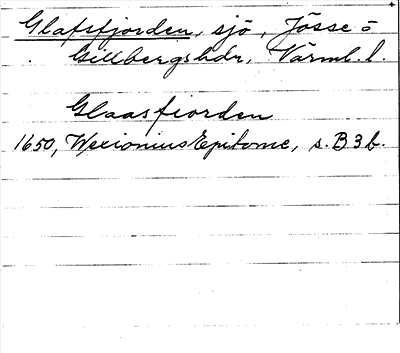 Glafsfjorden, sjö, Jösse o
Gillbergshdr, Värml. l.
Glaasfiorden
1650, Wexionius Epitome, s. B3b.